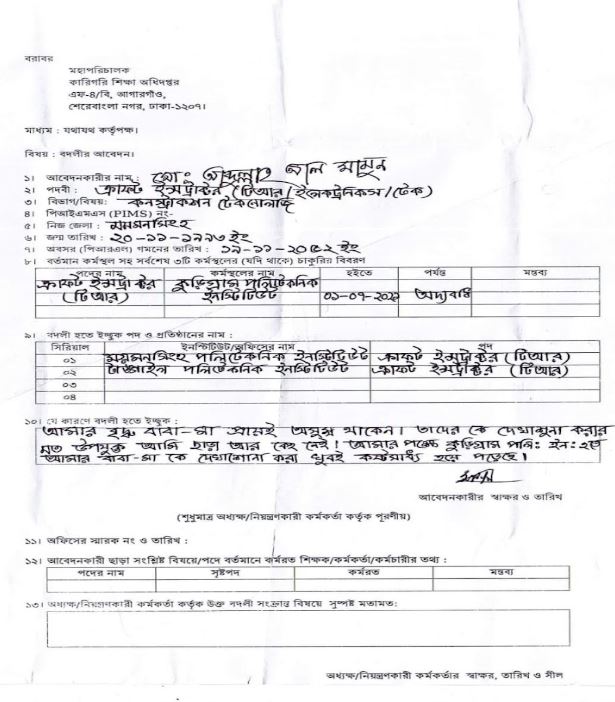 বরাবর
মহাপরিচালক
কারিগরি শিক্ষা অধিদপ্তর
এফ-৪/বি, আগারগাঁও,
শেরেবাংলা নগর, ঢাকা-১২০৭।
মাধ্যম : যথাযথ কর্তৃপক্ষ।
বিষয় : বদলীর আবেদন।
১। আবেদনকারীর নাম : মো: আব্দুল্লাহ আল মামুন
২। পদবী : ক্রাফট ইন্সট্রাক্টর (টিআর/ইলেকট্রনিকস/টেক)
৩। বিভাগ/বিষয়: কনস্ট্রাকশন টেকনোলজি
৪। পিআইএমএস (PIMS) নং-
৫। নিজ জেলা : ময়মনসিংহ
৬। জন্ম তারিখ : ২০-১১-১৯৯৩ ইং
৭। অবসর (পিআরএল) গমনের তারিখ : ১৯-১১-২০৫২ ইং
৮। বর্তমান কর্মস্থল সহ সর্বশেষ ৩টি কর্মস্থলের (যদি থাকে) চাকুরির বিবরণ
পদের নাম কর্মস্থলের নাম হইতে পর্যন্ত মন্তব্য
ক্রাফট ইন্সট্রাক্টর কুড়িগ্রাম পলিটেকনিক
(টিআর) ইনস্টিটিউট ০১-০৭-২০২১ অদ্যবধি
৯। বদলী হতে ইচ্ছুক পদ ও প্রতিষ্ঠানের নাম :
সিরিয়াল ইনস্টিটিউট/অফিসের নাম পদ
০১ ময়মনসিংহ পলিটেকনিক ইনস্টিটিউট ক্রাফট ইন্সট্রাক্টর (টিআর)
০২ টাঙ্গাইল পলিটেকনিক ইনস্টিটিউট ক্রাফট ইন্সট্রাক্টর (টিআর)
০৩
০৪
১০। যে কারণে বদলী হতে ইচ্ছুক :
আমার বৃদ্ধ বাবা-মা প্রায়ই অসুস্থ থাকেন। তাদের কে দেখাশুনা করার
মত উপযুক্ত আমি ছাড়া আর কেহ নেই। আমার পক্ষে কুড়িগ্রাম পলি: ইন: হতে
আমার বাবা-মা কে দেখাশোনা করা খুবই কষ্টসাধ্য হয়ে পড়েছে।
আবেদনকারীর স্বাক্ষর ও তারিখ
(শুধুমাত্র অধ্যক্ষ/নিয়ন্ত্রণকারী কর্মকর্তা কর্তৃক পূরণীয়)
১১। অফিসের স্মারক নং ও তারিখ :
১২। আবেদনকারী ছাড়া সংশ্লিষ্ট বিষয়ে/পদে বর্তমানে কর্মরত শিক্ষক/কর্মকর্তা/কর্মচারীর তথ্য :
পদের নাম সৃষ্টপদ কর্মরত মন্তব্য
১৩। অধ্যক্ষ/নিয়ন্ত্রণকারী কর্মকর্তা কর্তৃক উক্ত বদলী সংক্রান্ত বিষয়ে সুস্পষ্ট মতামত:
অধ্যক্ষ/নিয়ন্ত্রণকারী কর্মকর্তার স্বাক্ষর, তারিখ ও সীল